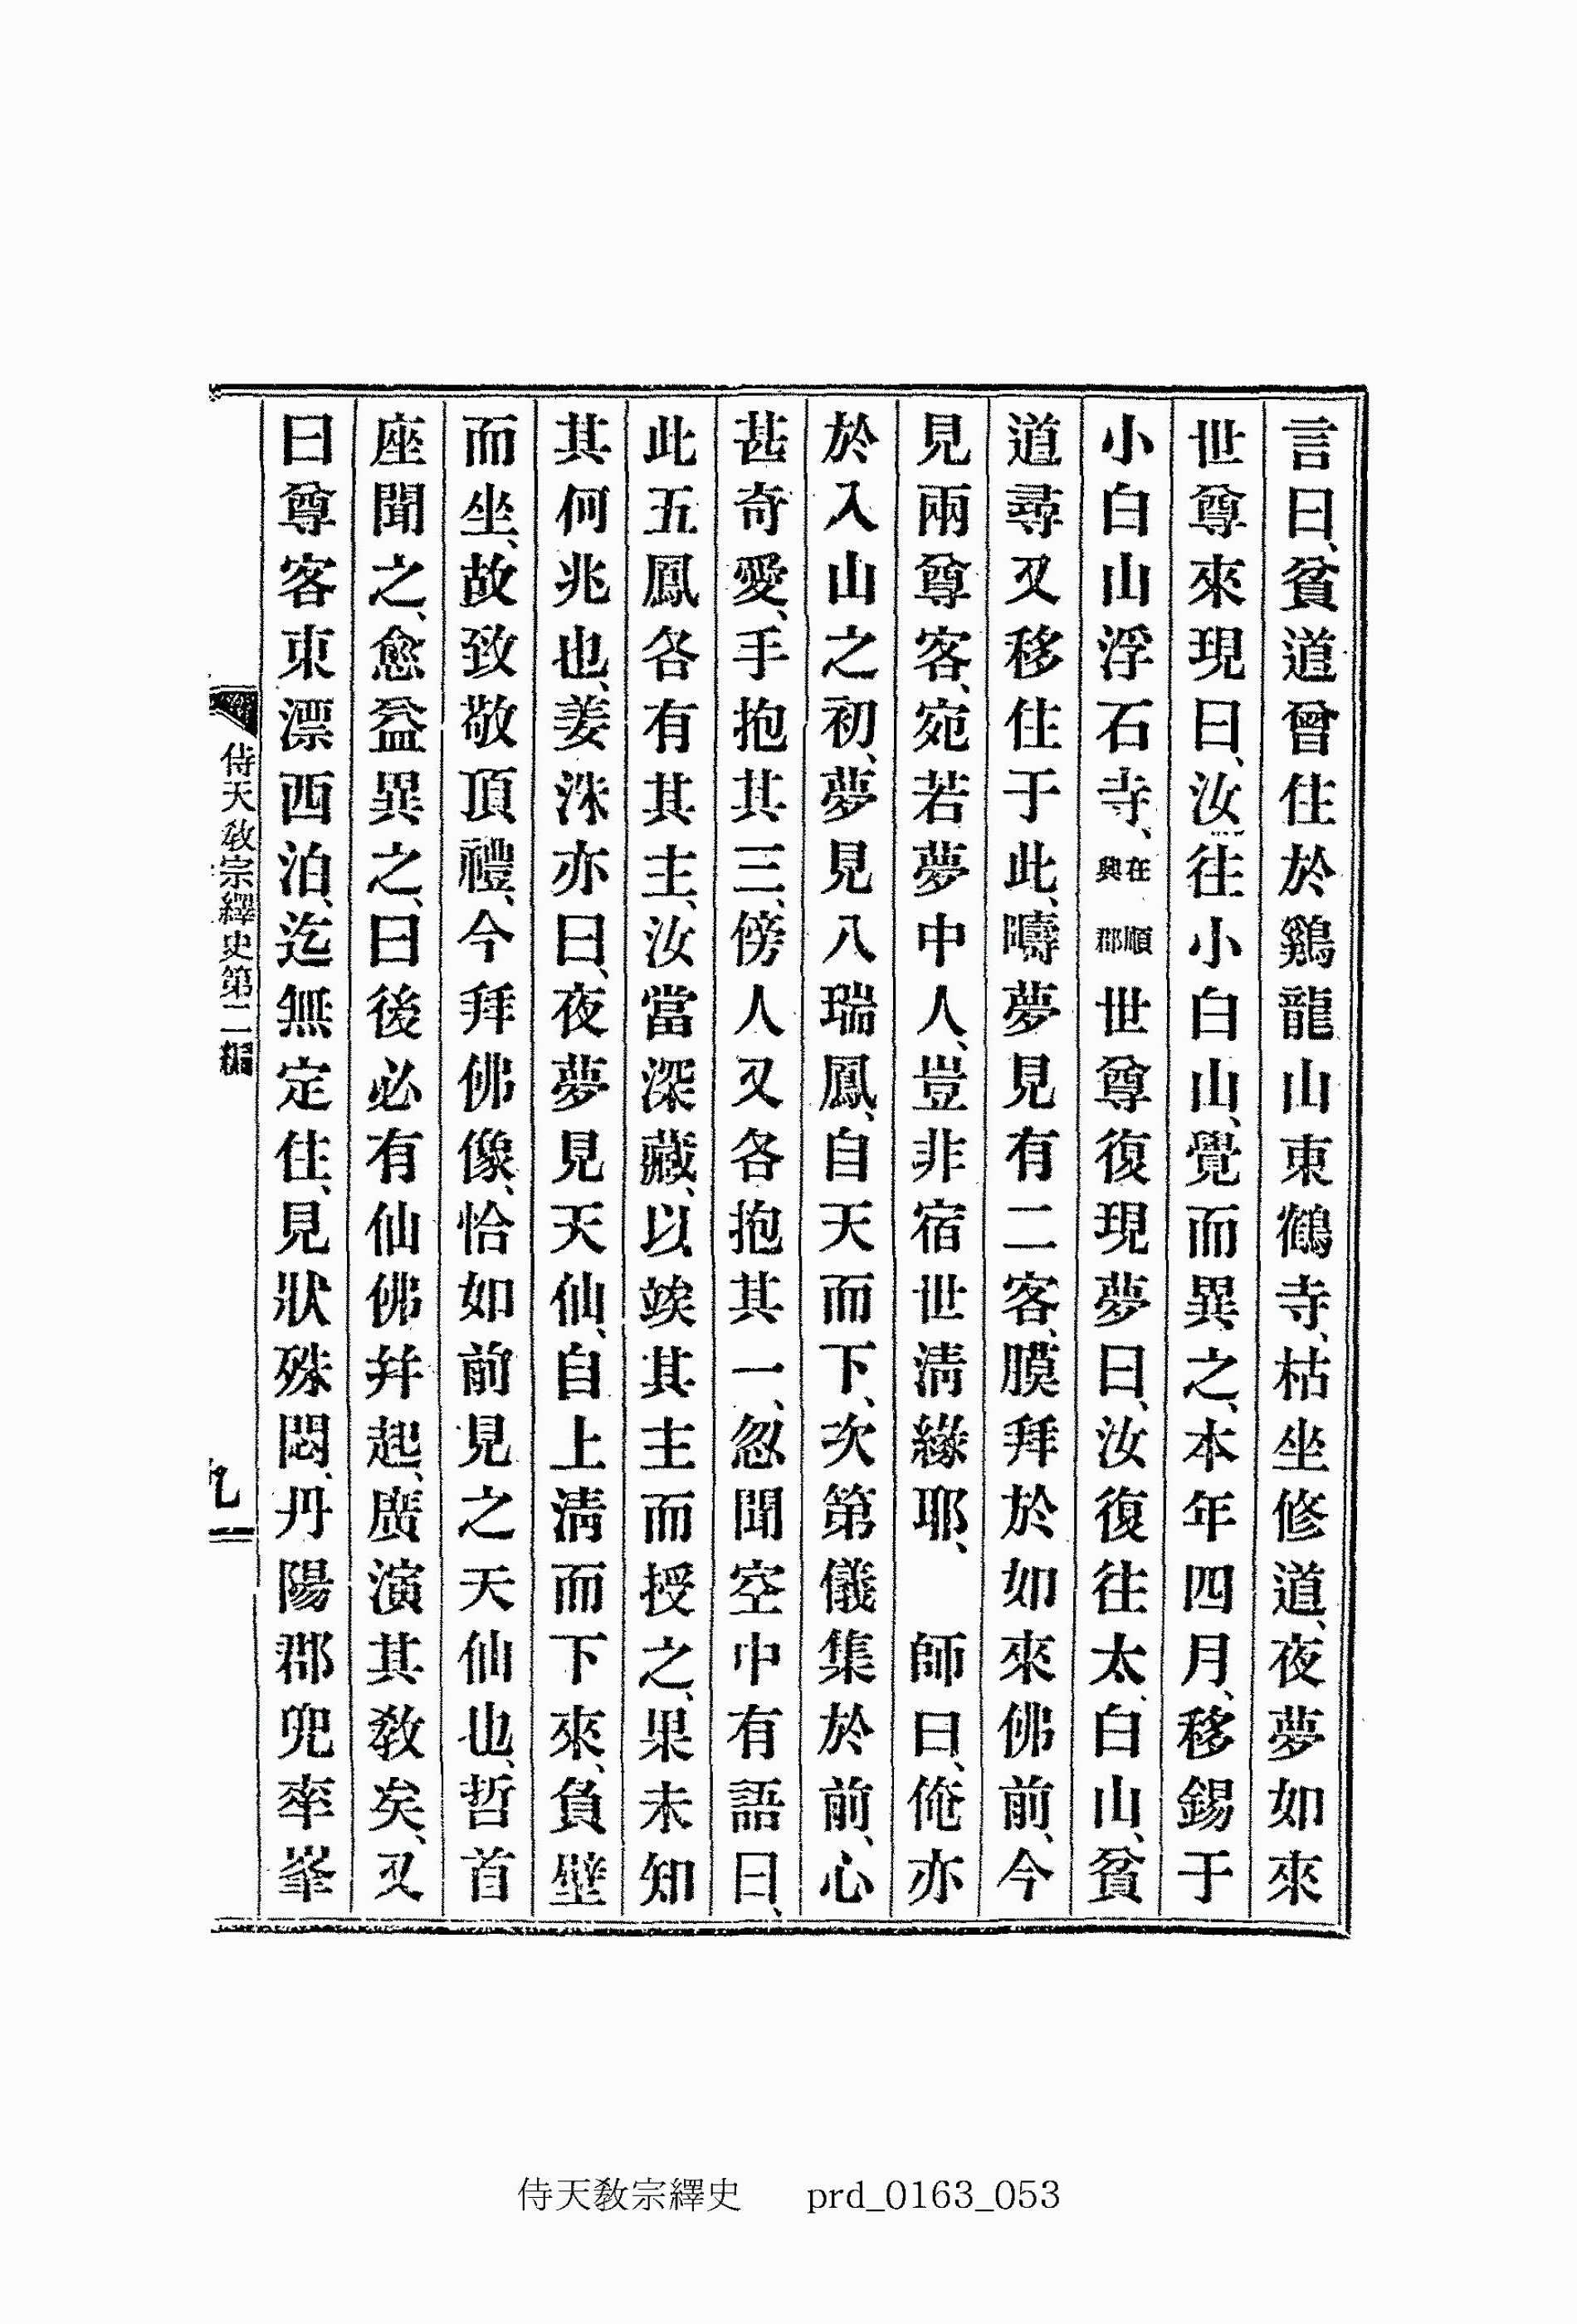 言曰、貧道曾住於鷄龍山東鶴寺、枯坐修道、夜夢如來
世尊來現曰、汝往小白山、覺而異之、本年四月、移錫于
小白山浮石寺、在順興郡世尊復現夢曰、汝復往太白山、貧
道尋又移住于此、疇夢見有二客、膜拜於如來佛前、今
見兩尊客、宛若夢中人、豈非宿世淸緣耶、　師曰、俺亦
於入山之初、夢見八瑞鳳、自天而下、次第儀集於前、心
甚奇愛、手抱其三、傍人又各抱其一、忽聞空中有語曰、
此五鳳各有其主、汝當深藏、以竢其主而授之、果未知
其何兆也、姜洙亦曰、夜夢見天仙、自上淸而下來、負壁
而坐、故致敬頂禮、今拜佛像、恰如前見之天仙也、哲首
座聞之、愈益異之、曰後必有仙佛幷起、廣演其敎矣、又
曰尊客東漂西泊、迄無定住、見狀殊悶、丹陽郡兜率峯
侍天敎宗繹史第二編
九
侍天敎宗繹史 prd_0163_053